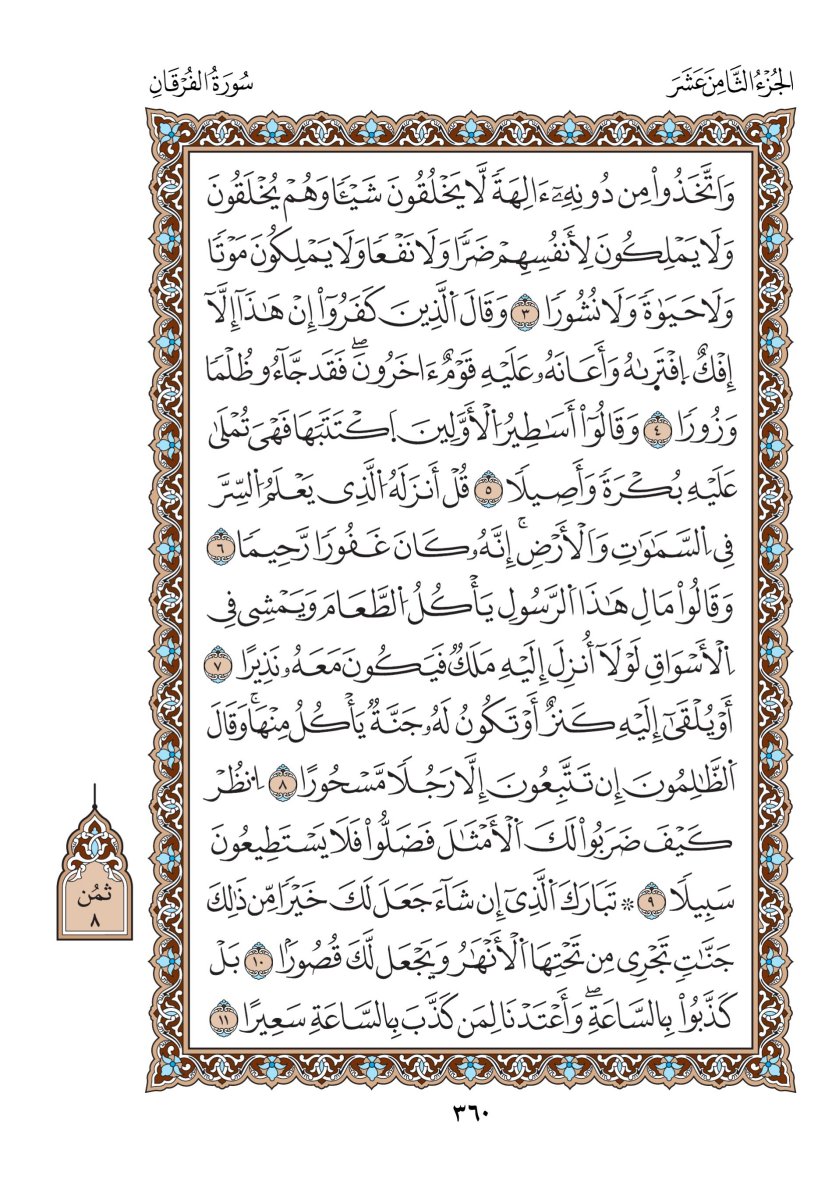 الجُزْءُ الثَّامِنَ عَشَرَ
سُورَةُ الفُرْقَانِ
وَاتَّخَذُواْ مِن دُونِهِۦٓ ءَالِهَةٗ لَّا يَخْلُقُونَ شَيْـٔٗا وَهُمْ يُخْلَقُونَ
وَلَا يَمْلِكُونَ لِأَنفُسِهِمْ ضَرّٗا وَلَا نَفْعٗا وَلَا يَمْلِكُونَ مَوْتٗا
وَلَا حَيَوٰةٗ وَلَا نُشُورٗا ٣ وَقَالَ اَ۬لذِينَ كَفَرُوٓاْ إِنْ هَٰذَآ إِلَّآ
إِفْكٌ اِ۪فْتَر۪ىٰهُ وَأَعَانَهُۥ عَلَيْهِ قَوْمٌ ءَاخَرُونَۖ فَقَد جَّآءُو ظُلْمٗا
وَزُورٗا ٤ وَقَالُوٓاْ أَسَٰطِيرُ اُ۬لْأَوَّلِينَ اَ۪كْتَتَبَهَا فَهْيَ تُمْلَىٰ
عَلَيْهِ بُكْرَةٗ وَأَصِيلٗا ٥ قُلْ أَنزَلَهُ اُ۬لذِي يَعْلَمُ اُ۬لسِّرَّ
فِي اِ۬لسَّمَٰوَٰتِ وَالْأَرْضِۚ إِنَّهُۥ كَانَ غَفُورٗا رَّحِيمٗا ٦
وَقَالُواْ مَالِ هَٰذَا اَ۬لرَّسُولِ يَأْكُلُ اُ۬لطَّعَامَ وَيَمْشِي فِي
اِ۬لْأَسْوَاقِ لَوْلَآ أُنزِلَ إِلَيْهِ مَلَكٞ فَيَكُونَ مَعَهُۥ نَذِيرًا ٧
أَوْ يُلْقَىٰٓ إِلَيْهِ كَنزٌ أَوْ تَكُونُ لَهُۥ جَنَّةٞ يَأْكُلُ مِنْهَاۚ وَقَالَ
اَ۬لظَّٰلِمُونَ إِن تَتَّبِعُونَ إِلَّا رَجُلٗا مَّسْحُورًا ٨ اِ۟نظُرْ
كَيْفَ ضَرَبُواْ لَكَ اَ۬لْأَمْثَٰلَ فَضَلُّواْ فَلَا يَسْتَطِيعُونَ
سَبِيلٗا ٩ ۞ تَبَارَكَ اَ۬لذِيٓ إِن شَآءَ جَعَلَ لَكَ خَيْرٗا مِّن ذَٰلِكَ
جَنَّٰتٖ تَجْرِي مِن تَحْتِهَا اَ۬لْأَنْهَٰرُ وَيَجْعَل لَّكَ قُصُورَۢا ١٠ بَلْ
كَذَّبُواْ بِالسَّاعَةِۖ وَأَعْتَدْنَا لِمَن كَذَّبَ بِالسَّاعَةِ سَعِيرًا ١١
ثُمُن
٨
٣٦٠